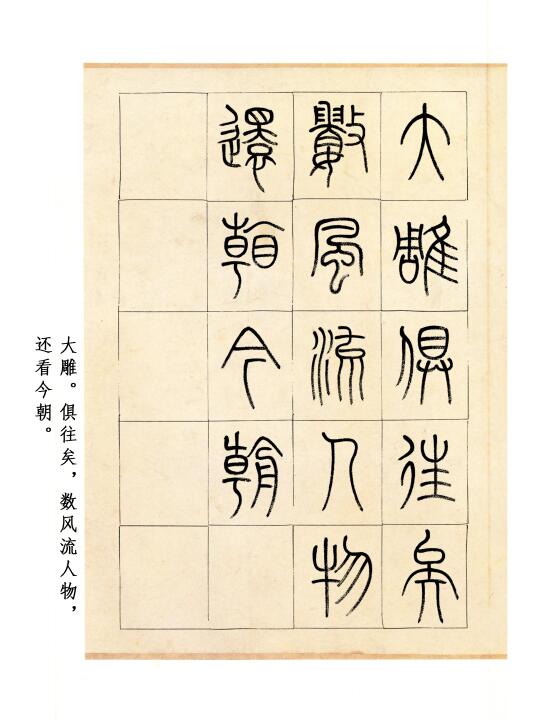 大雕俱往矣
數風流人物
還看今朝
大雕。俱往矣，数风流人物，
还看今朝。